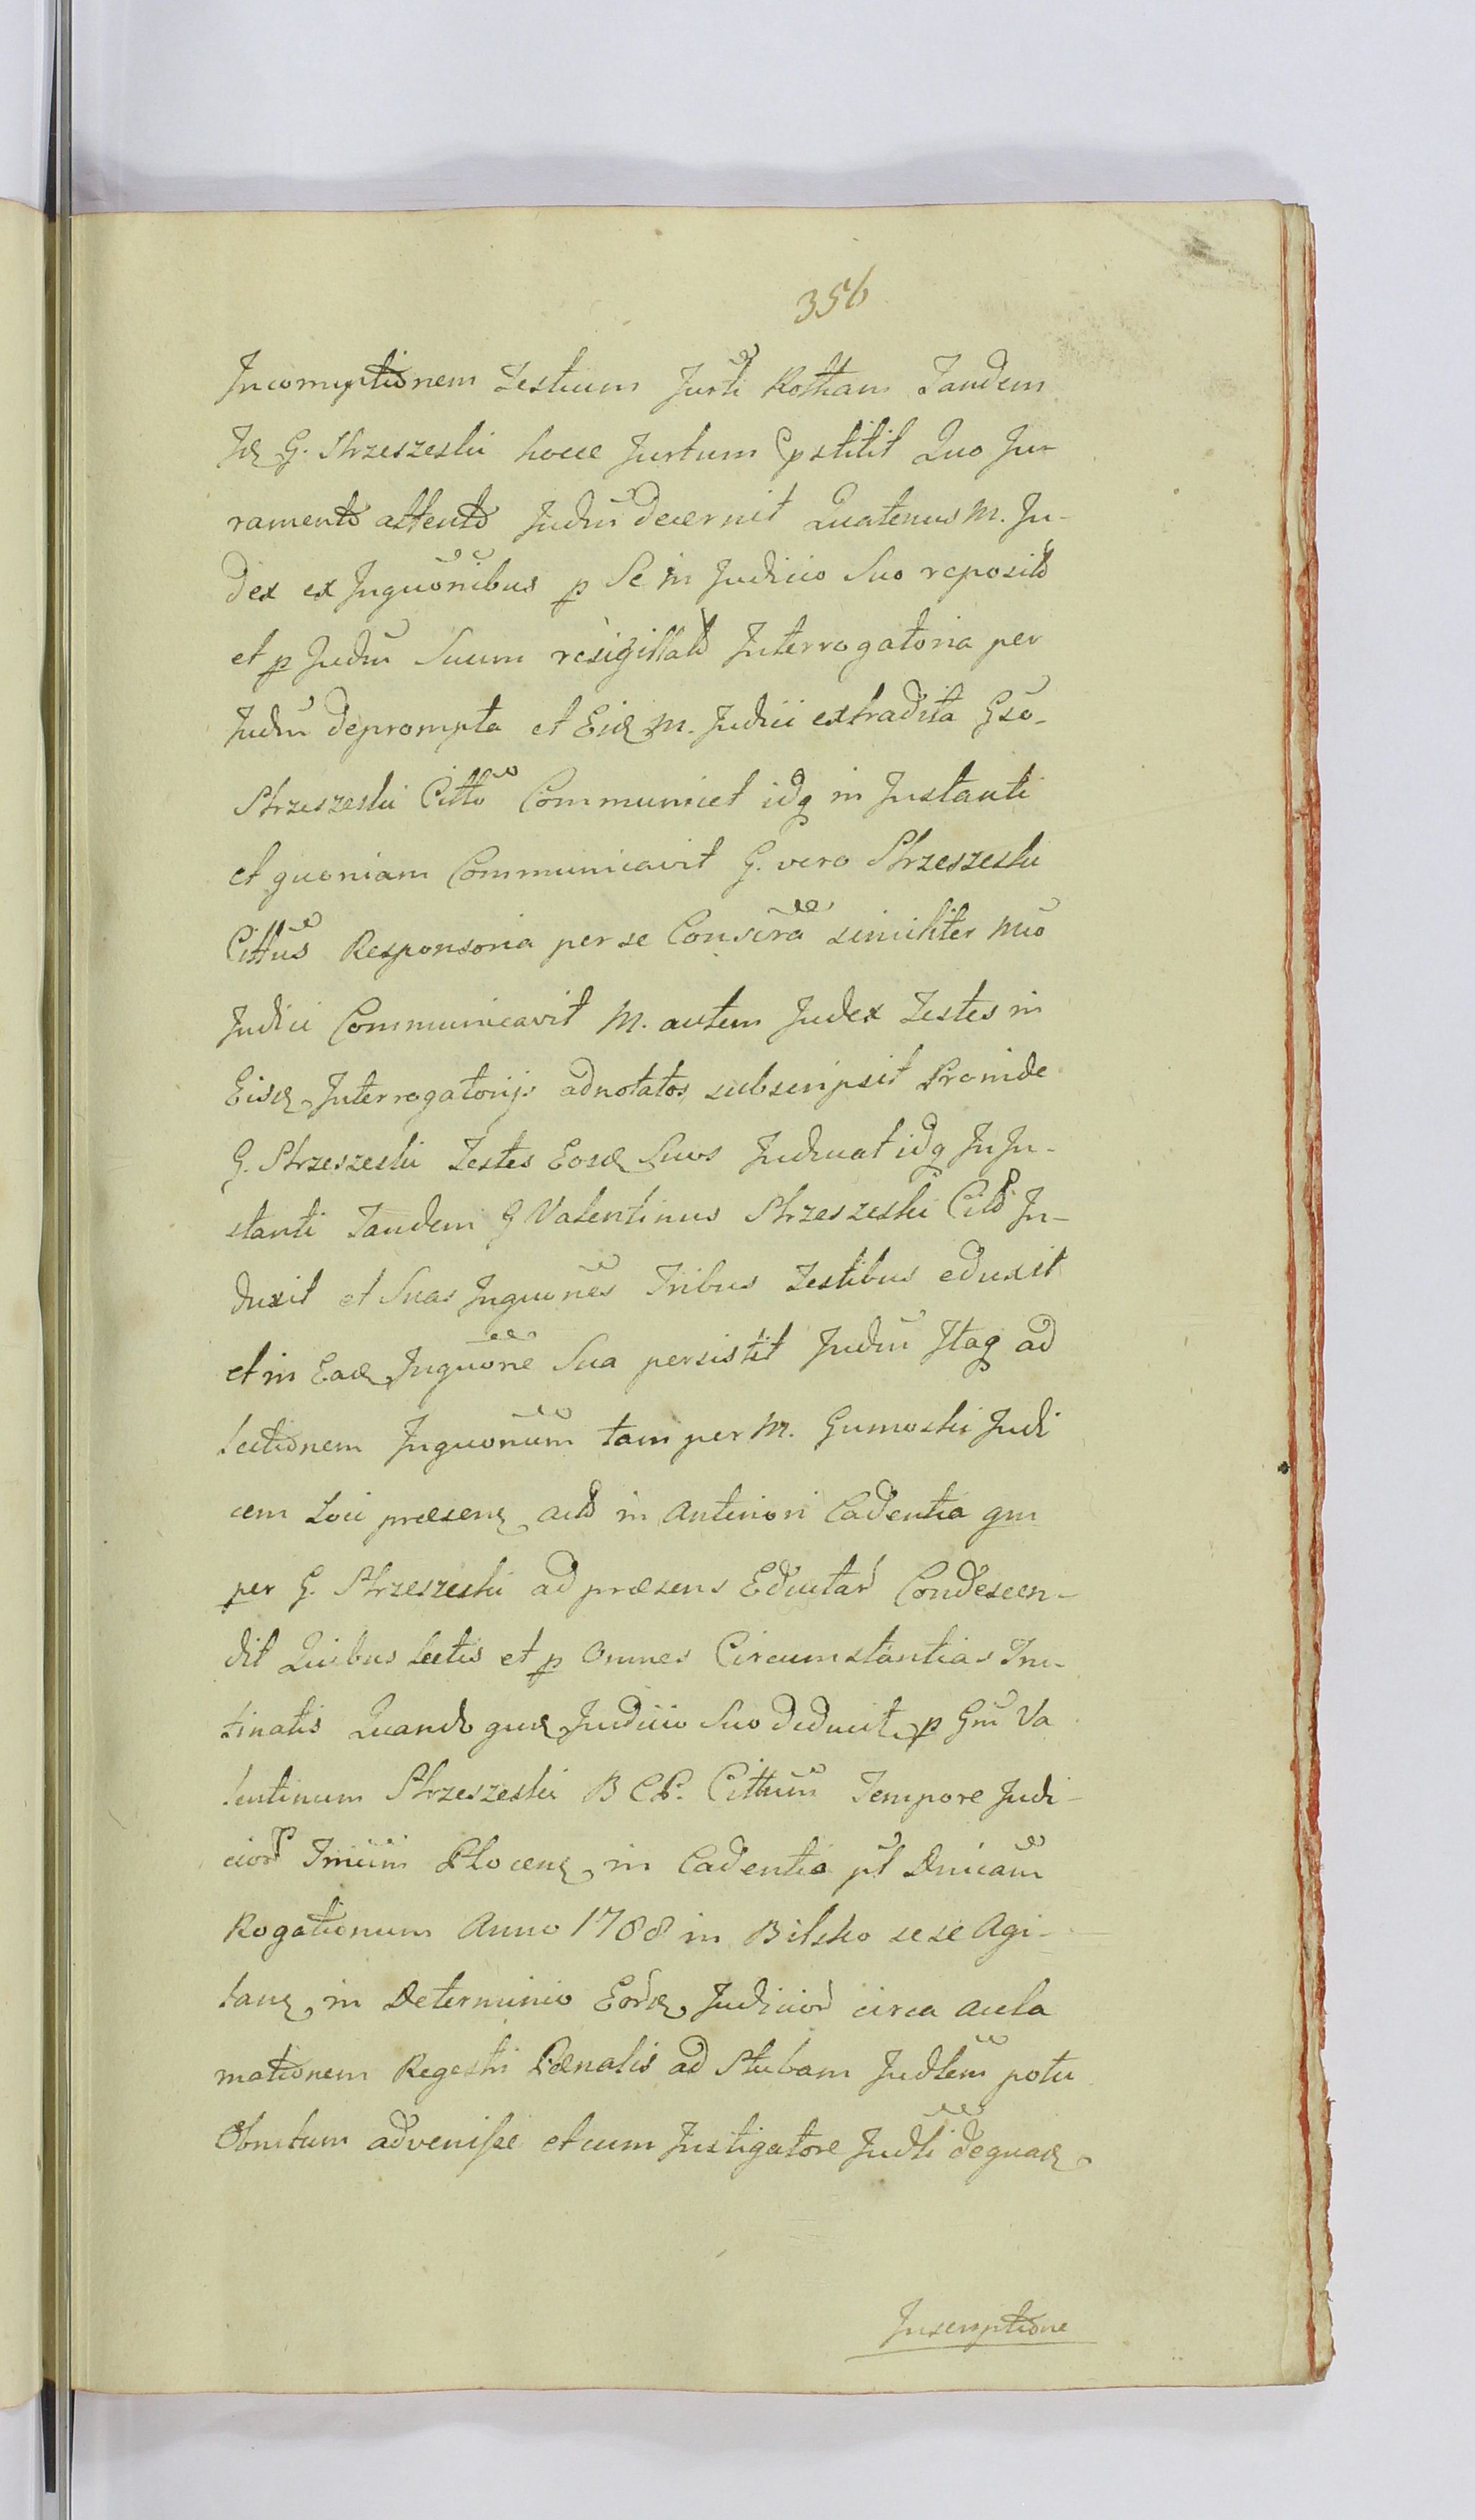 356
Incorruptionem Testium Jurti Rotham Tandem
Id G. Strzeszeski hocce Jurtum Cpstitit Quo Ju-
ramento attento Judm decernit Quatenus M. Ju-
dex ex Inquonibus p Se in Judicio Suo reposito
et p Judm Suum resigillato Interrogatoria per
Judm deprompta et Eid M. Judici extradita Gso
Strzeszeski Citto Communicet idq in Instanti
et quoniam Communicavit G. vero Strzeszeski
Cittus Responsoria per se Conscra similiter Mco
Judici Communicavit M. autem Judex Testes in
Eisd Interrogatorijs adnotatos subscripsit Proinde
G. Strzeszeski Testes Eosd Suos Inducat idq In In-
stanti Tandem G Valentinus Strzeszeski Citt In-
duxit et Suas Inquones Tribus Testibus eduxit
et in Ead Inquone Sua persistit Judm Itaq ad
lectionem Inquonum tam per M. Gumoski Judi
cem Loci praesens acto in Anteriori Cadentia qm
per G. Strzeszeski ad praesens Eductar Condescen-
dit Quibus lectis et p Omnes Circumstantias Tru-
tinatis Quando quid Judicio Suo deducit p Gm Va
lentinum Strzeszeski B C P. Cittum Tempore Judi-
cior Trium Plocens in Cadentia pt Dnicam
Rogationum Anno 1788 in Bilsko sese Agi-
tans in Determinio Eord Judicior circa accla
mationem Regestri Paenalis ad Stubam Judlem potu
Obrutum advenisse et cum Instigatore Judli dequad
Inscriptione